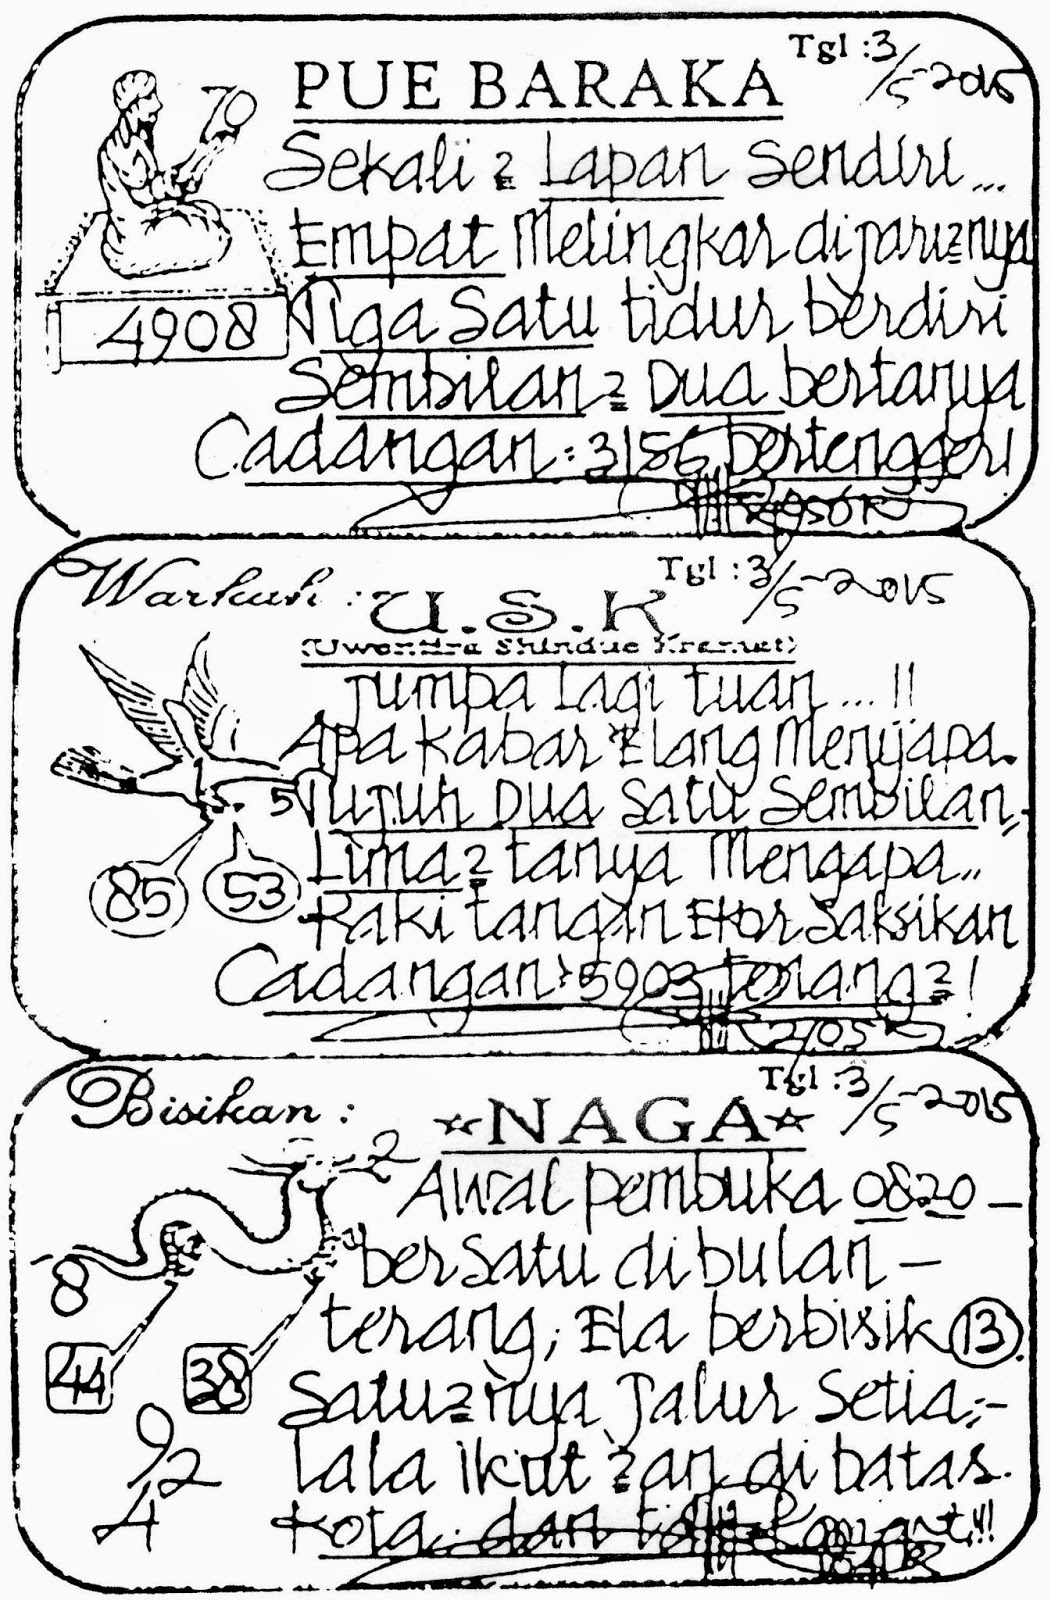 Tgl : 3/5-2015
PUE BARAKA
70
Sekali 2 Lapan Sendiri...
Empat Melingkar dijari2nya
Tiga Satu tidur berdiri
4908
Sembilan 2 Dua bertanya
Cadangan : 3156 bertengger!
Warkuh :
Tgl : 3/5-2015
U.S.K
(Uwentira Shindue Kramat)
Jumpa Lagi tuan...!!
Apa Kabar Elang Menyapa.
5
Tujuh Dua Satu Sembilan,-
85
53
Lima 2 tanya Mengapa..
Kaki tangan Ekor Saksikan
Cadangan : 5903 terang2!
Bisikan :
Tgl : 3/5-2015
NAGA
2
Awal pembuka 0820 -
bersatu di bulan -
8
terang, Ela berbisik 13.
44
38
Satu2nya Jalur Setia,-
9
2
4
Lala ikut 2an di batas.
Kota. dan